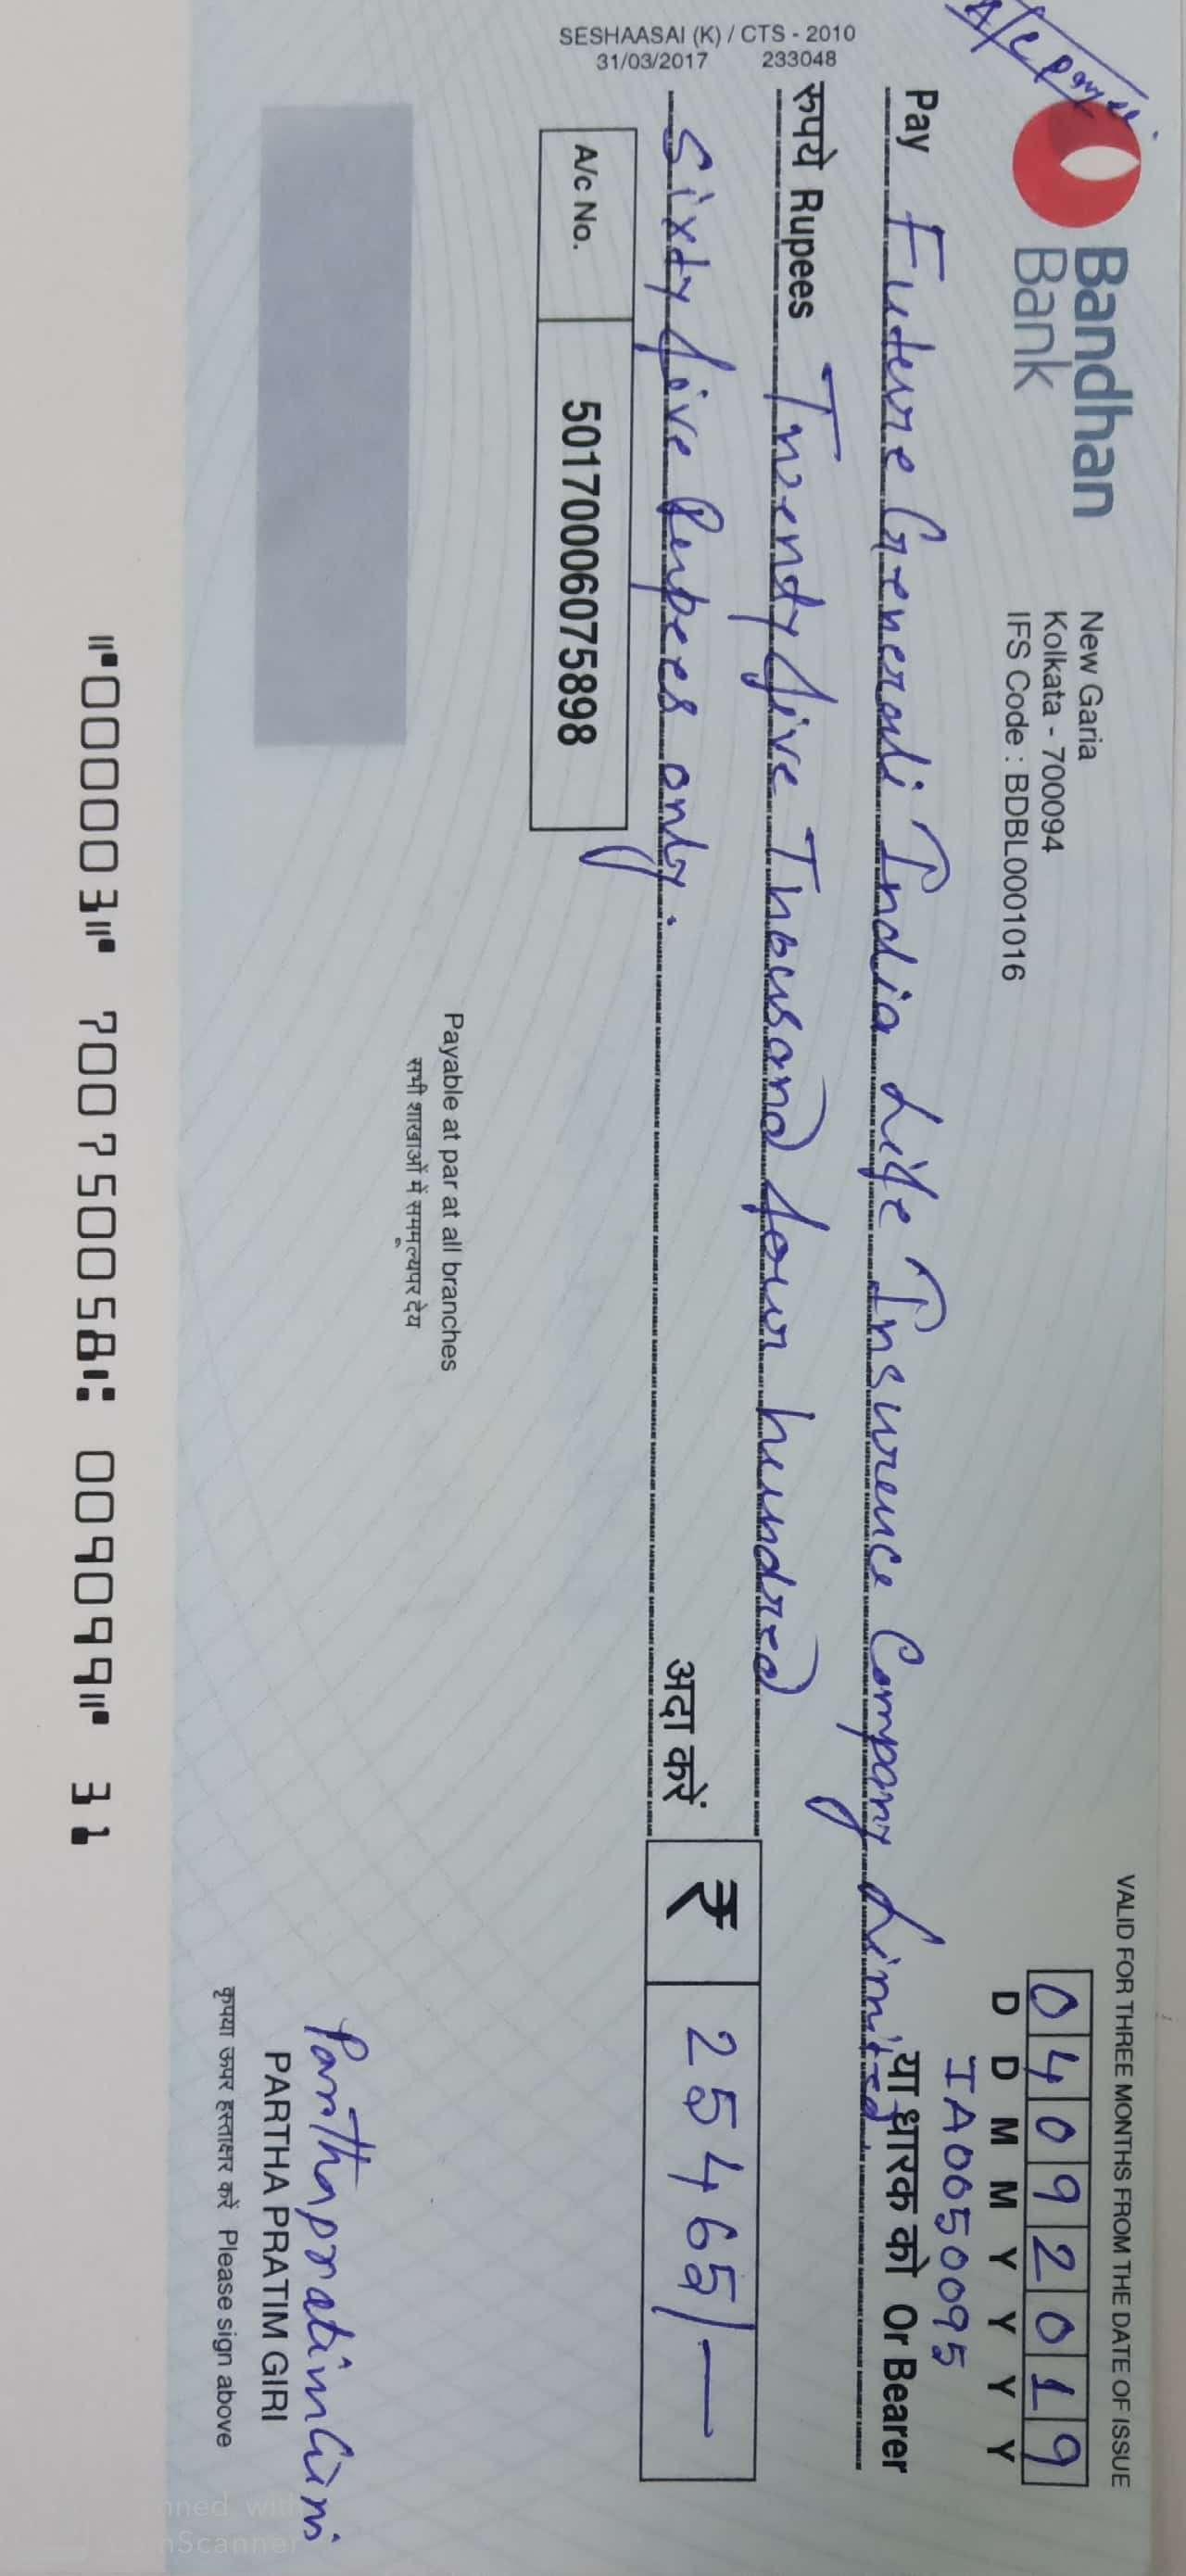 A/c payee.
Bandhan
Bank
New Garia
Kolkata - 700094
IFS Code : BDBL0001016
VALID FOR THREE MONTHS FROM THE DATE OF ISSUE
04092019
D D M M Y Y Y Y
IA0050095
Pay Future Generali India Life Insurence Company Limited. या धारक को Or Bearer
रुपये Rupees Twenty five Thousand four hundred
Sixty five Rupees only. अदा करें
₹ 25465/-
A/c No. 50170006075898
SESHAASAI (K) / CTS - 2010
31/03/2017 233048
Payable at par at all branches
सभी शाखाओं में सममूल्यपर देय
Parthapratim Giri
PARTHA PRATIM GIRI
कृपया ऊपर हस्ताक्षर करें Please sign above
⑈000003⑈ 700750058⑆ 009099⑈ 31